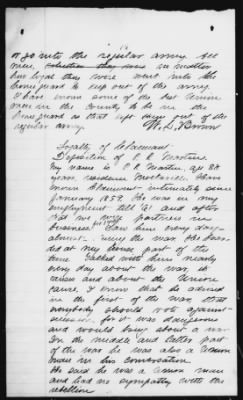 or go into the regular army. Some
men, were in neither
but that they went into the
home guard to keep out of the army.
I have known some of the best Union
men in the county to be in the
home guard as that kept them out of the
regular army.
Brown
Loyalty of Claimant.
Deposition of Martin.
My name is Martin, age 38
years residence I have
known Claimant intimately since
January 1859. He was in my
employment till '61 and after
that we were partners in
business. Saw him every day
almost during the war. He
at my house part of the
time. Talked with him nearly
every day about the war, its
and about the Union
cause. I know that he advised
in the first of the war, that
everybody should vote against
secession, for it was dangerous
and would bring about a war.
In the middle and latter part
of the war he was also a Union
man in his conversation.
He said he was a Union man
and had no sympathy with the
rebellion